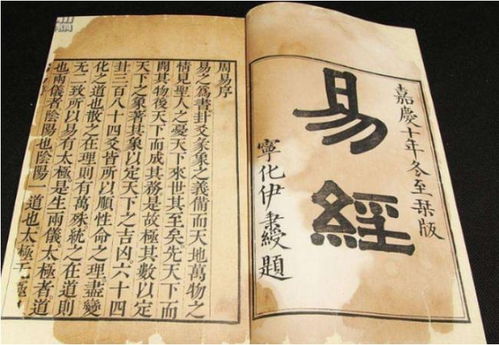 嘉慶十年冬至栞版
易經
寧化伊題
周易序
易之爲書卦爻彖象之義備而天地萬物之
情見聖人之憂天下來世其至矣先天下而
開其物後天下而成其務是故極其數以定
天下之象著其象以定天下之吉凶六十四
卦三百八十四爻皆所以順性命之理盡變
化之道也散之在理則有萬殊統之在道則
无二致所以易有太極是生兩儀太極者道
也兩儀者陰陽也陰陽一道也太極无極